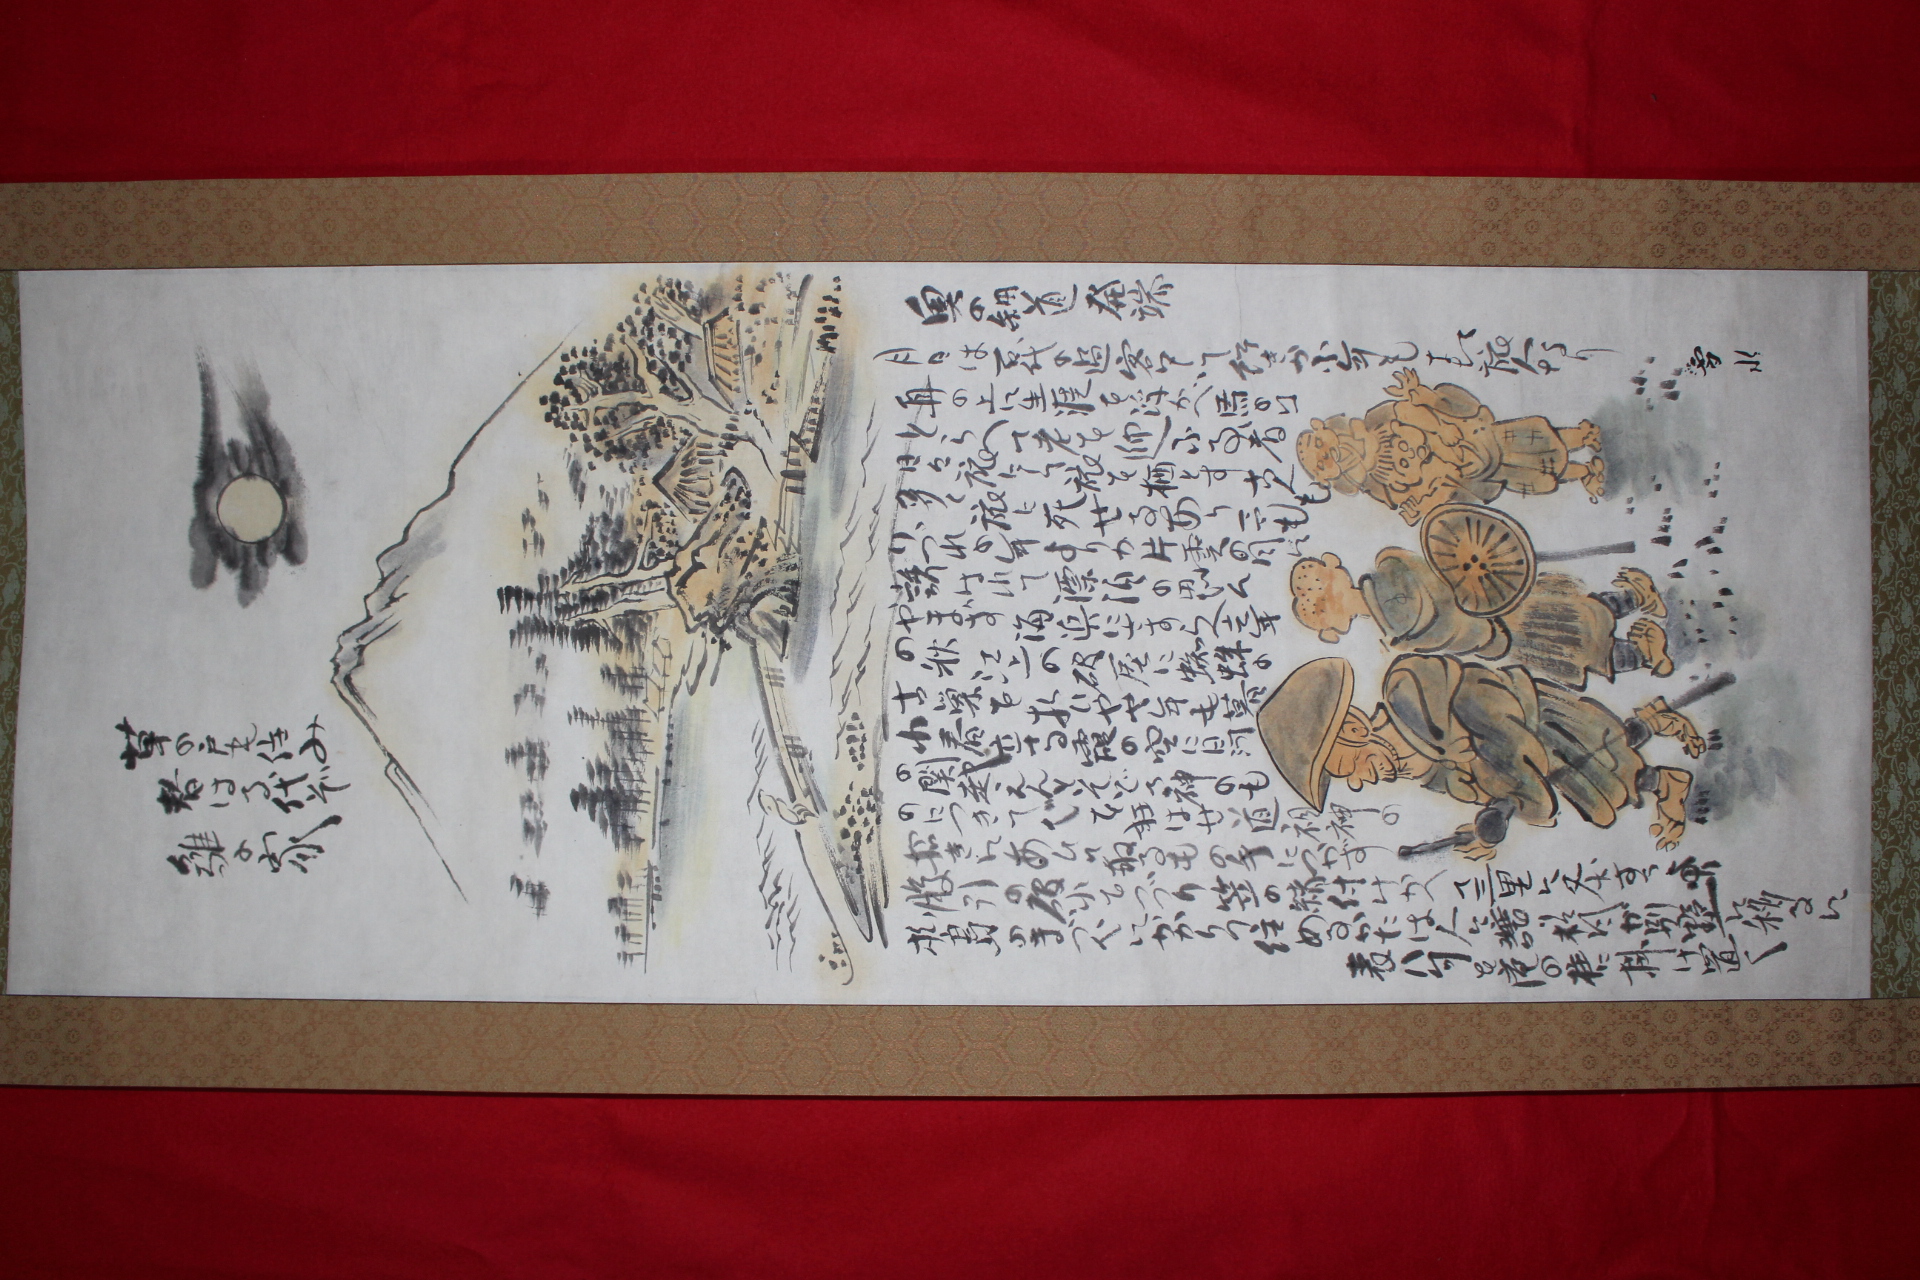 草の戸も住み
替はる代ぞ
雛の家
奥の細道 発端
月日は百代の過客にして行きかふ年もまた旅人なり
舟の上に生涯を浮かべ馬の口
とらへて老を迎ふる者
日々旅にして旅を栖とす古人も
多く旅に死せるあり予も
いづれの年よりか片雲の風に
誘はれて漂泊の思ひ
やまず海浜にさすらへ去年
の秋江上の破屋に蜘蛛の
古巣を払いやや年も暮
春立てる霞の空に白河
の関越えんとそぞろ神のも
のにつきて心を狂はせ道祖神の
招きにあひて取るもの手につかず
股引の破れをつづり笠の緒付けかへて三里に灸する
松島の月まづ心にかかりて住めるかたは人に譲り杉風が別墅に移るに
表八句を庵の柱に掛け置く
雪水